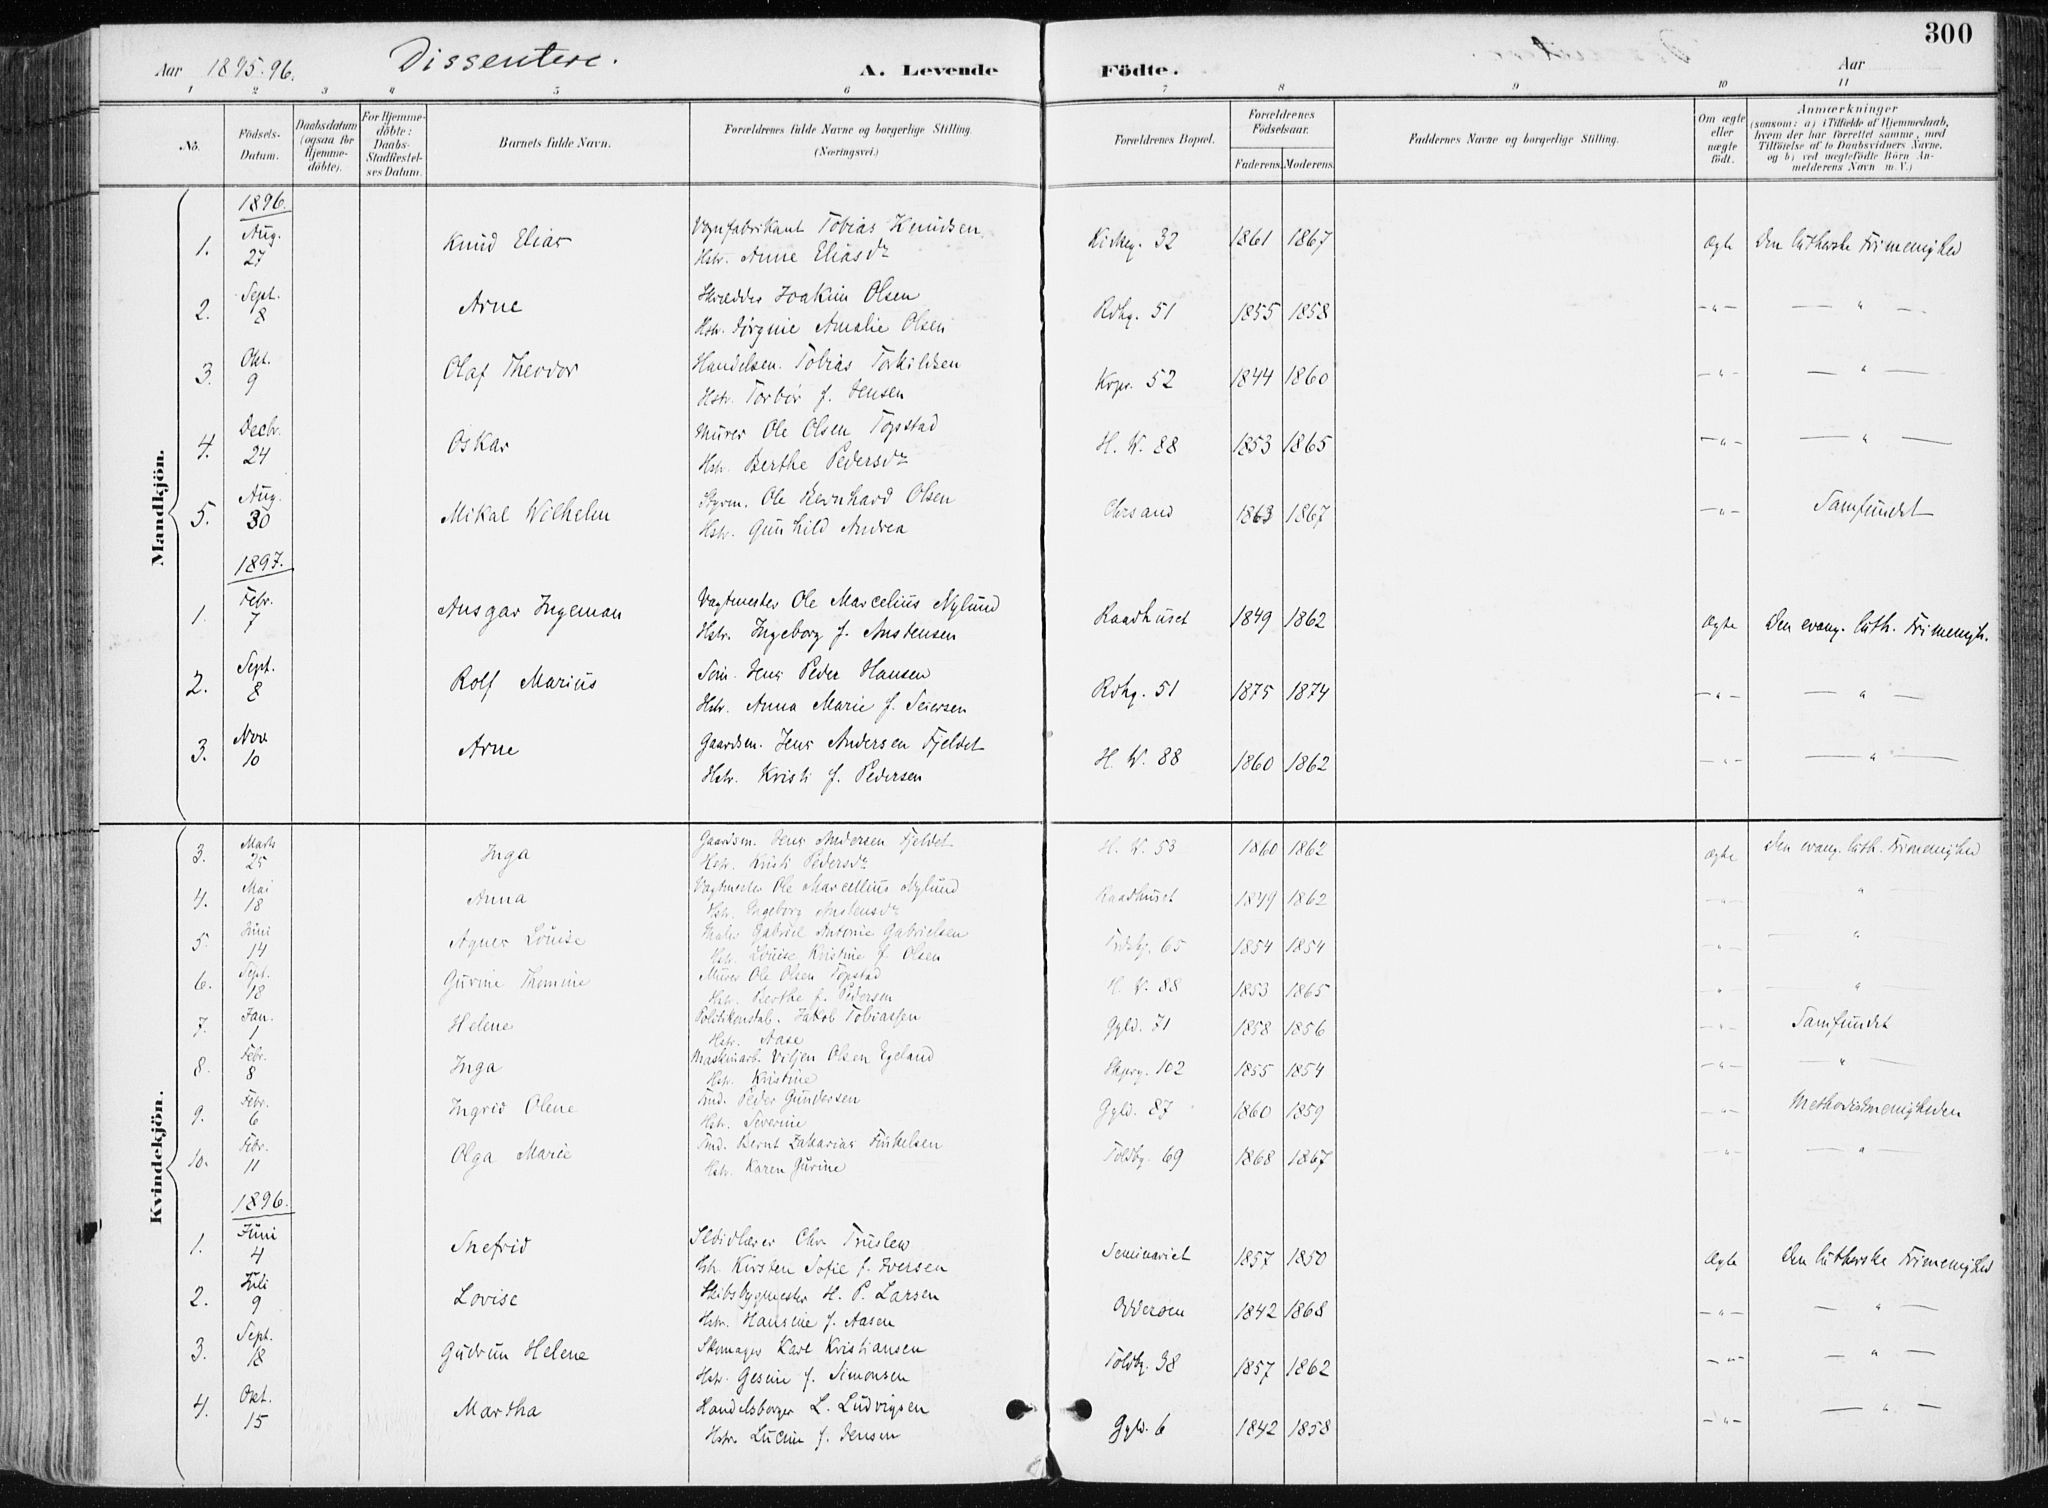 300
Aar 1895.96. Dissentere. A. Levende Födte. Aar
1 2 3 4 5 6 7 8 9 10 11
No. Födsels-Datum. Daabsdatum (ogsaa for Hjemme-döbte). For Hjemme-döbte: Daabs-Stadfæstel-ses Datum. Barnets fulde Navn. Forældrenes fulde Navne og borgerlige Stilling. (Næringsvei.) Forældrenes Bopæl. Forældrenes Födselsaar. Faderens. Moderens. Faddernes Navne og borgerlige Stilling. Om ægte eller uægte födt. Anmærkninger (saasom: a) i Tilfælde af Hjemmedaab, hvem der har forrettet samme, med Tilföielse af to Daabsvidners Navne, og b) ved uægtefödte Börn An-melderens Navn m. V.)
Mandkjön.
1896.
1. Aug. 27 Knud Elias Vognfabrikant Tobias Knudsen Kirkeg. 32 1861 1867 Ægte Den lutherske Frimenighed
Hstr. Anne Eliasdr
2. Sept. 8 Arne Skrædder Joakim Olsen Rdhg. 51 1855 1858 -"- — " —
Hstr. Jörgine Amalie Olsen
3. Okt. 9 Olaf Theodor Handelsm. Tobias Torkildsen Krpr. 52 1844 1860 -"- — " —
Hstr. Torbör f. Jensen
4. Decbr. 24 Oskar Murer Ole Olsen Topstad H. W. 88 1853 1865 -"- — " —
Hstr. Berthe Pedersdr
5. Aug. 30 Mikal Wilhelm Styrm. Ole Bernhard Olsen Chrsand 1863 1867 -"- Samfundet
Hstr. Gunhild Andrea
1897.
1. Febr. 7 Ansgar Ingeman Vagtmester Ole Marcelius Nylund Raadhuset 1849 1862 Ægte Den evang. luth. Frimenigh.
Hstr. Ingeborg f. Anstensen
2. Sept. 8 Rolf Marius Söm. Jens Peder Hansen Rdhg. 51 1875 1874 -"- — " —
Hstr. Anna Marie f. Seiersen
3. Nov 10 Arne Gaardsm. Jens Andersen Fjeldet H. W. 88 1860 1862 -"- — " —
Hstr. Kristi f. Pedersen
Kvindekjön.
3. Marts 25 Inga Gaardsm. Jens Andersen Fjeldet H. W. 53 1860 1862 Ægte Den evang. luth. Frimenighed
Hstr. Kristi Pedersdr
4. Mai 18 Anna Vagtmester Ole Marcellius Nylund Raadhuset 1849 1862 -"- — " —
Hstr. Ingeborg Anstensdr
5. Juni 14 Agnes Louise Maler Gabriel Antonie Gabrielsen 65 1854 1854 -"- — " —
Hstr. Louise Kristine f. Olsen
6. Sept. 18 Gurine Thomine Murer Ole Olsen Topstad H. W. 88 1853 1865 -"- — " —
Hstr. Berthe f. Pedersen
7. Jan. 1 Helene Politikonstab. Jakob Tobiassen Gyld. 71 1858 1856 -"- Samfundet
Hstr. Aase
8. Febr. 8 Inga Maskinarb. Viljen Olsen Egeland Skprg. 102 1855 1854 -"- — " —
Hstr. Kristine
9. Febr. 6 Ingrid Olene Tmd. Peder Gundersen Gyld. 87 1860 1859 -"- Methodistmenigheden
Hstr. Severine
10. Febr. 11 Olga Marie Tmd. Bernt Zakarias Terkelsen Toldbg. 69 1868 1867 -"- — " —
Hstr. Karen Gurine
1896.
1. Juni 4 Snefrid Chr. Truslew Seminariet 1857 1850 Ægte Den lutherske Frimenighed
Hstr. Kirsten Sofie f. Iversen
2. Juli 9 Lovise Skibsbygmester H. P. Larsen Odderöen 1842 1868 -"- — " —
Hstr. Hansine f. Aasen
3. Sept. 18 Gudrun Helene Skomager Karl Kristiansen Toldbg. 38 1857 1862 -"- — " —
Hstr. Gesine f. Simonsen
4. Okt. 15 Martha Handelsborger L. Ludvigsen Gyld. 6 1842 1858 -"- — " —
Hstr. Lucine f. Jensen